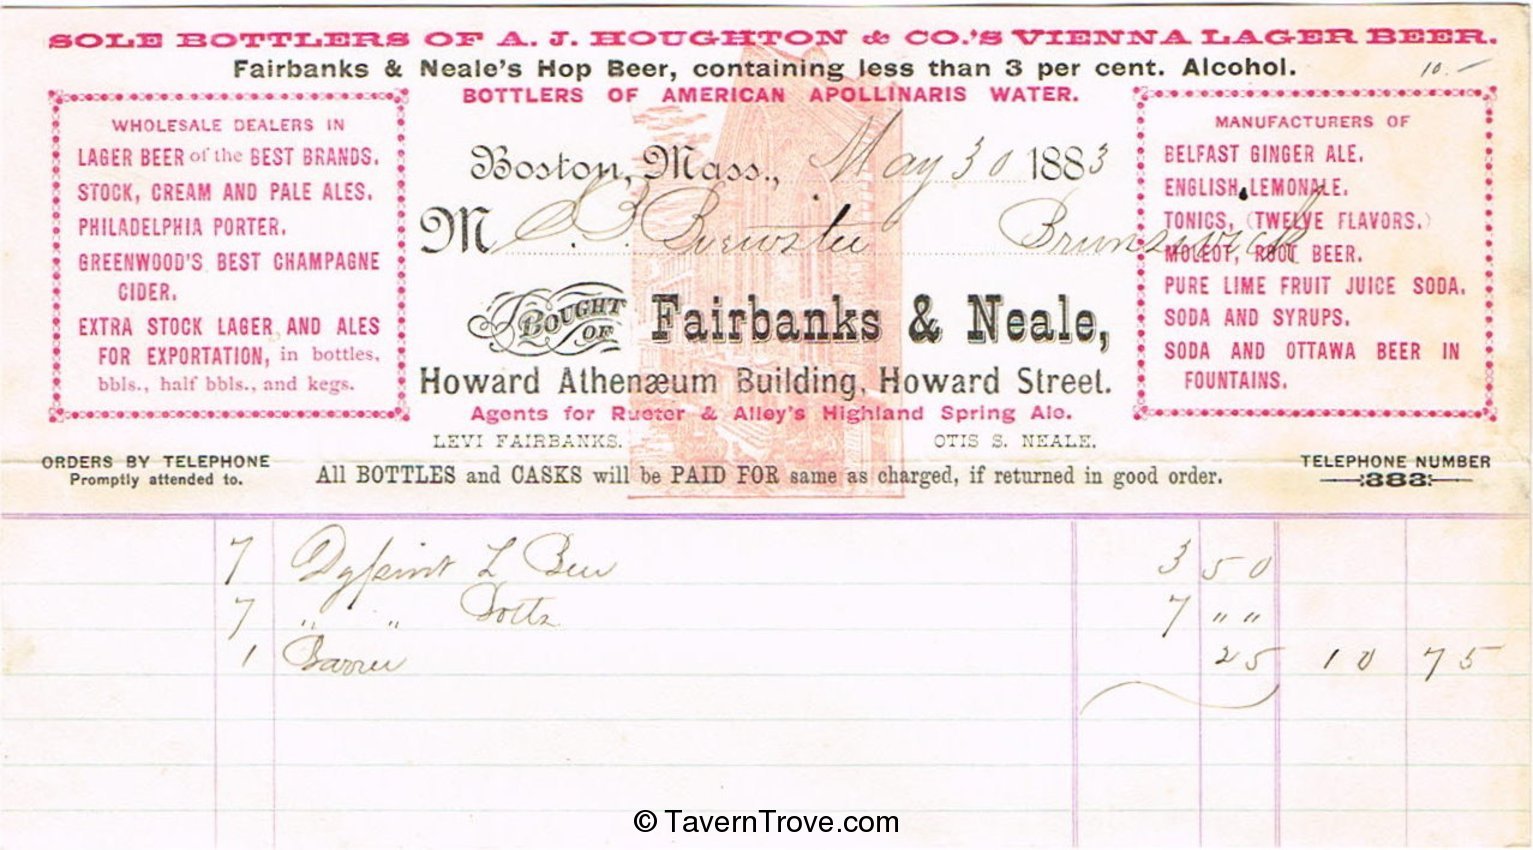 SOLE BOTTLERS OF A. J. HOUGHTON & CO.'S VIENNA LAGER BEER.
Fairbanks & Neale's Hop Beer, containing less than 3 per cent. Alcohol.
10.-
BOTTLERS OF AMERICAN APOLLINARIS WATER.
WHOLESALE DEALERS IN
LAGER BEER of the BEST BRANDS.
STOCK, CREAM AND PALE ALES.
PHILADELPHIA PORTER.
GREENWOOD'S BEST CHAMPAGNE
CIDER.
EXTRA STOCK LAGER AND ALES
FOR EXPORTATION, in bottles,
bbls., half bbls., and kegs.
Boston, Mass., May 30 1883
M S. B. Brewster Brunswick
BOUGHT OF Fairbanks & Neale,
Howard Athenæum Building, Howard Street.
Agents for Rueter & Alley's Highland Spring Ale.
LEVI FAIRBANKS. OTIS S. NEALE.
MANUFACTURERS OF
BELFAST GINGER ALE.
ENGLISH LEMONALE.
TONICS, (TWELVE FLAVORS.)
MOLEOT, ROOT BEER.
PURE LIME FRUIT JUICE SODA.
SODA AND SYRUPS.
SODA AND OTTAWA BEER IN
FOUNTAINS.
ORDERS BY TELEPHONE
Promptly attended to.
All BOTTLES and CASKS will be PAID FOR same as charged, if returned in good order.
TELEPHONE NUMBER
383
7 L Beer 3 50
7 " " Botts 7 " "
1 Barrel 25 10 75
© TavernTrove.com